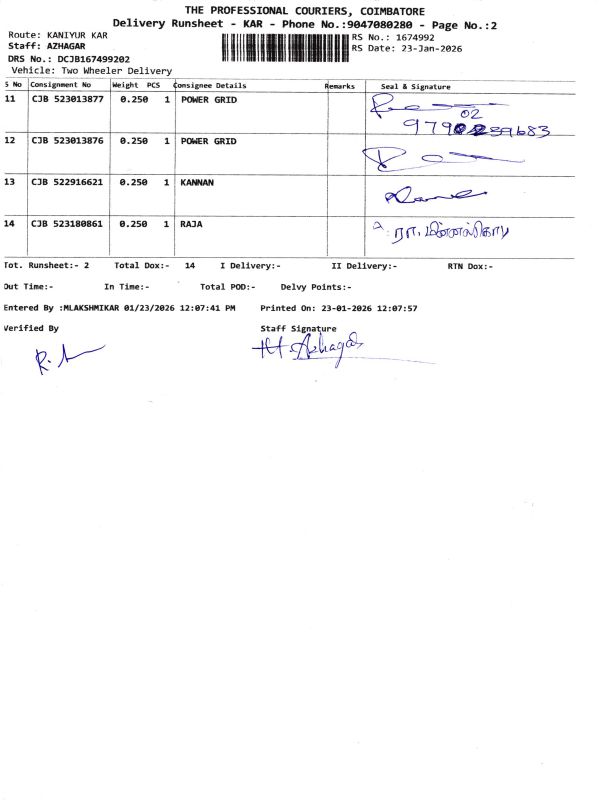 THE PROFESSIONAL COURIERS, COIMBATORE
Delivery Runsheet - KAR - Phone No.:9047080280 - Page No.:2
Route: KANIYUR KAR
Staff: AZHAGAR
DRS No.: DCJB167499202
Vehicle: Two Wheeler Delivery
RS No.: 1674992
RS Date: 23-Jan-2026
S No Consignment No Weight PCS Consignee Details Remarks Seal & Signature
11 CJB 523013877 0.250 1 POWER GRID
02
12 CJB 523013876 0.250 1 POWER GRID
13 CJB 522916621 0.250 1 KANNAN
14 CJB 523180861 0.250 1 RAJA
Tot. Runsheet:- 2 Total Dox:- 14 I Delivery:- II Delivery:- RTN Dox:-
Out Time:- In Time:- Total POD:- Delvy Points:-
Entered By :MLAKSHMIKAR 01/23/2026 12:07:41 PM Printed On: 23-01-2026 12:07:57
Verified By Staff Signature
Azhagar